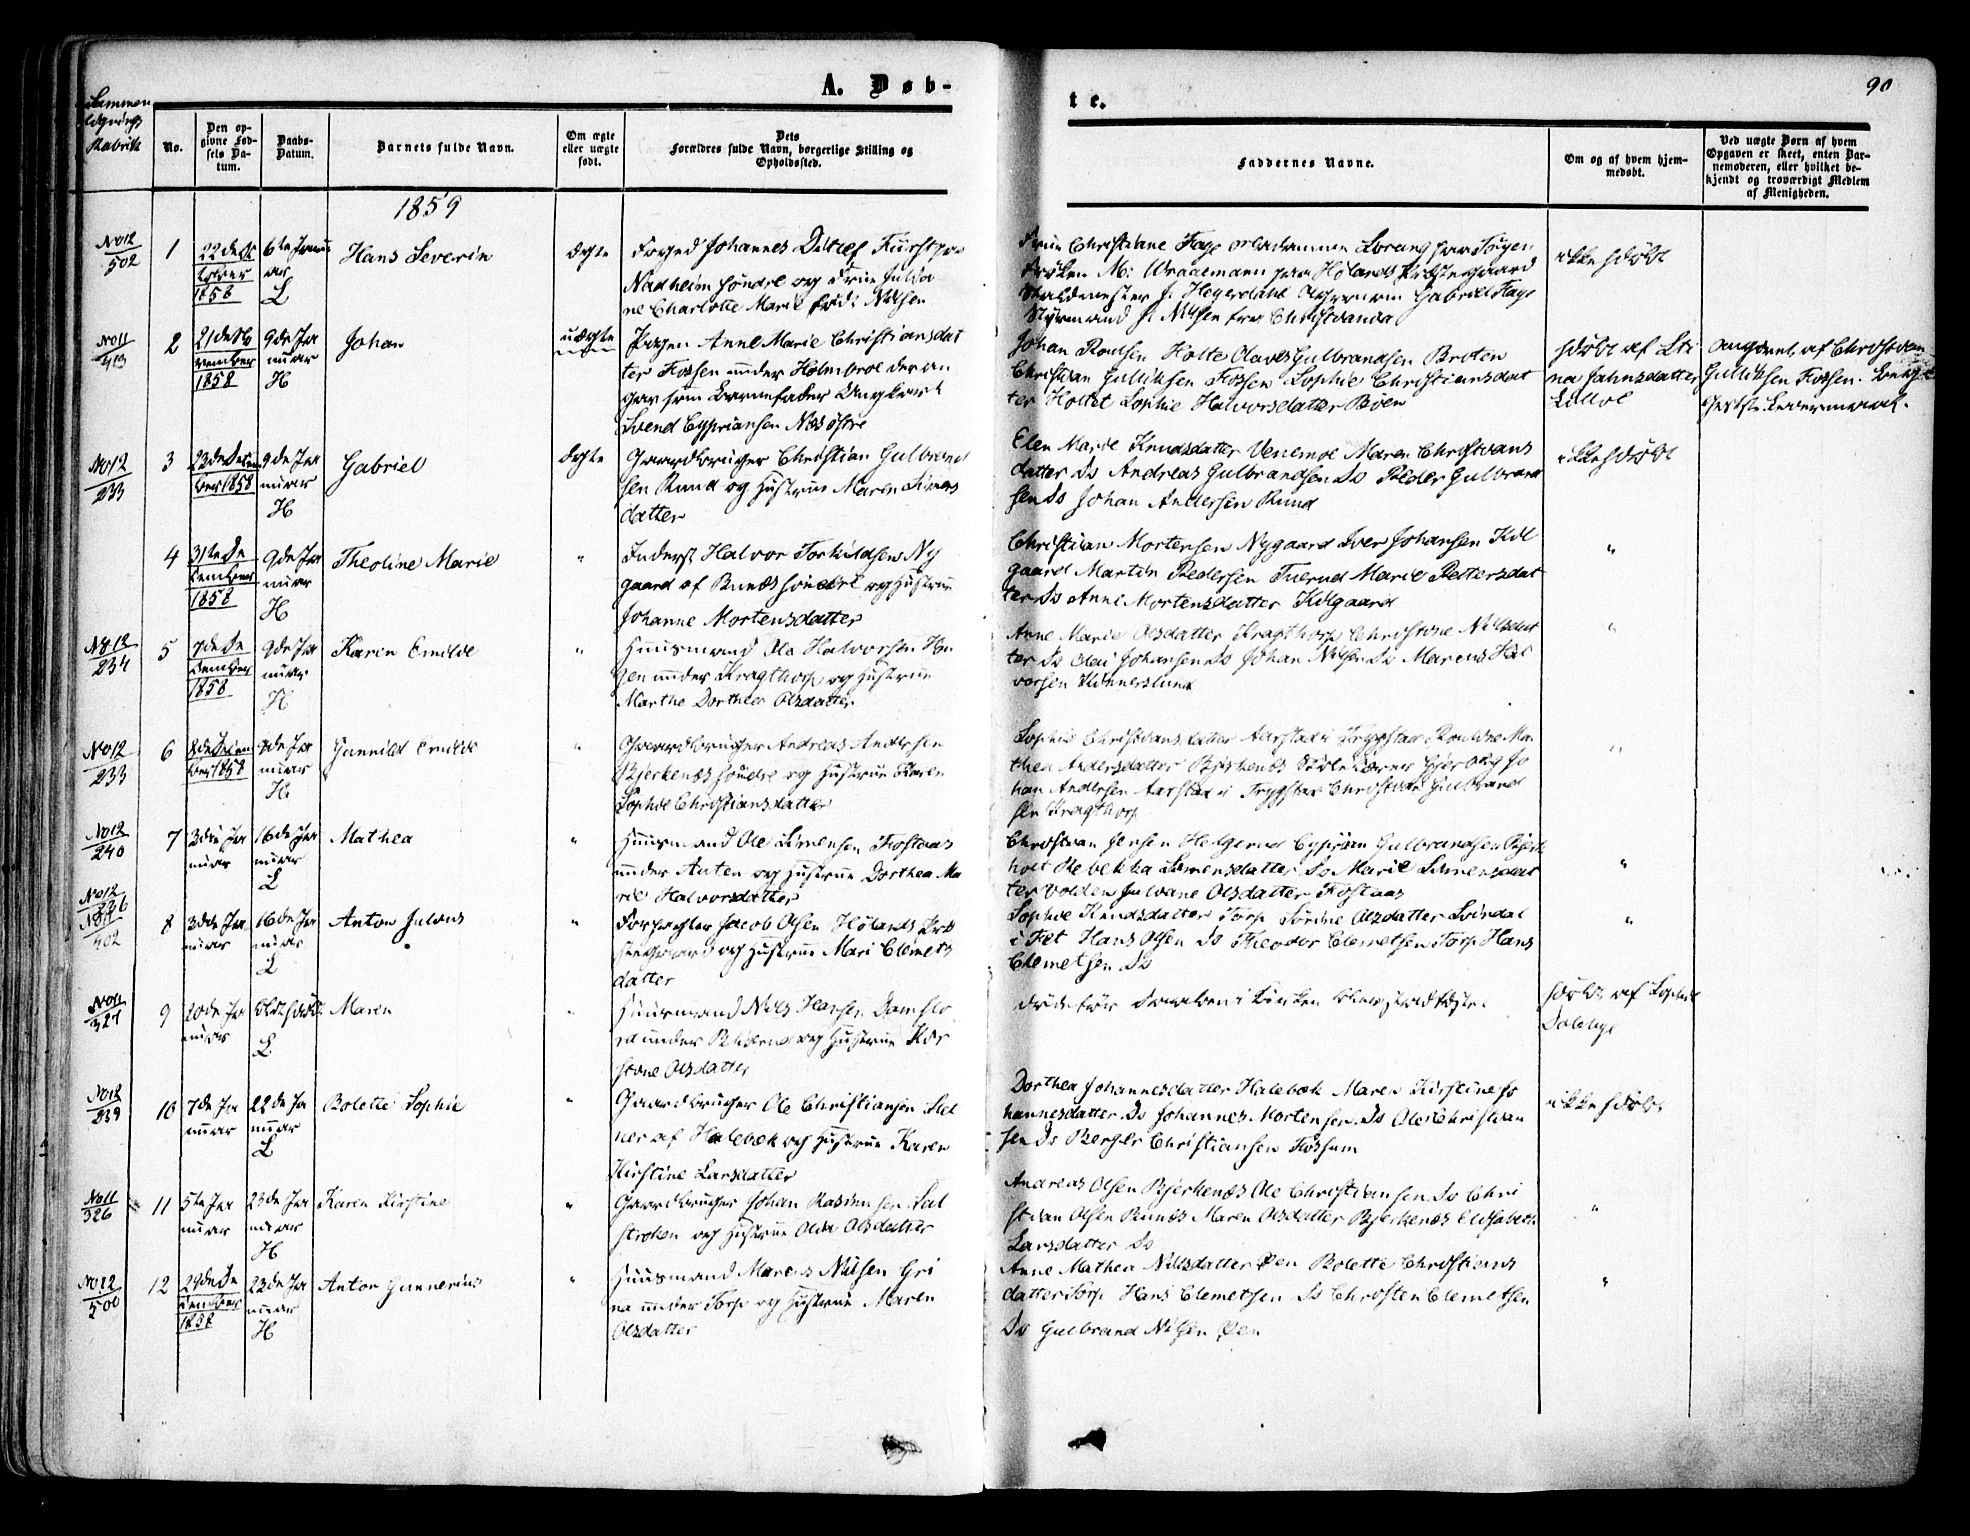 A. Døb-
te.
90
Sammen
lignings
Rubrik
No.
Den op-
givne Fød-
sels Da-
tum.
Daabs-
Datum.
Barnets fulde Navn.
Om ægte
eller uægte
født.
Dets
Forældres fulde Navn, borgerlige Stilling og
Opholdssted.
Faddernes Navne.
Om og af hvem hjem-
medøbt.
Ved uægte Børn af hvem
Opgaven er skeet, enten Bar-
nemoderen, eller hvilket be-
kjendt og troværdigt Medlem
af Menigheden.
1859
No 12
502
1
1858
L
Hans Severin
ægte
Foged Johannes Ditlef Fürst paa
Nadheim søndre og Frue Julia
ne Charlotte Marie født Nilsen
Frue Christiane Faye
Frøken M: Wraatmann paa Hølands Præstegaard
J. Hegerdahl Gabriel Faye
Styrmand J. Nilsen fra Christiania
ikke hjdøbt
No 11
413
2
21de No
vember
1858
9de Ja
nuar
H
Johan
uægte
Pigen Anne Marie Christiansdat
ter Fossen under Holmbroe der an
gav som Barnefader Ungkarl
Svend Cypriansen Næs østre
Johan Poulsen Holte Olaves Gulbrandsen Broten
Christian Gulliksen Fossen Sophie Christiansdat
ter Holtet Sophie Halvorsdatter Bøen
hjdøbt af Sti
na Jahnsdatter
angivet af Christian
Gulliksen Fossen.
No 12
233
3
23de Decem
ber 1858
9de Ja
nuar
H
Gabriel
ægte
Gaardbruger Christian Gulbrand
sen Rund og Hustrue Maren Simens
datter
Elen Marie Knudsdatter Venemoe Maren Christians
datter Do Andreas Gulbrandsen Do Peder Gulbrand
sen Do Johan Andersen Rund
ikke hjdøbt
4
31te De
cember
1858
9de Ja
nuar
H
Theoline Marie
"
Inderst Halvor Torkildsen Ny
gaard af Bunes søndre og Hustrue
Johanne Mortensdatter
Christian Mortensen Nygaard Iver Johansen Kil
gaard Martin Pedersen Tuerud Marie Pettersdat
ter Do Anne Mortensdatter Kilgaard
"
No 12
234
5
7de De
cember
1858
9de Ja
nuar
H
Karen Emilie
"
Huusmand Ole Halvorsen Ha
gen under Kragthorp og Hustrue
Marthe Dorthea Olsdatter
Anne Marie Olsdatter Kragthorp Christine Nilsdat
ter Do Johansen Do Johan Nilsen Do Marcus Hal
vorsen Kinnerslund
"
No 12
233
6
8de Decem
ber 1858
9de Ja
nuar
H
Gunnild Emilie
"
Gaardbruger Andreas Andersen
Bjerkenæs søndre og Hustrue Karen
Sophie Christiansdatter
Sophie Christiansdatter Aarstad i Trygstad Pauline Ma
thea Andersdatter Bjerkenæs
han Andersen Aarstad i Trygstad Christian Gulbrand
sen Kragthorp
"
No 12
240
7
3die Ja
nuar
16de Ja
nuar
L
Mathea
"
Huusmand Ole Simensen Fostaas
under Anten og Hustrue Dorthea Ma
rie Halvorsdatter
Christian Jensen Helgerud Cyprian Gulbrandsen Bjerk
holt Rebekka Simensdatter Do Marie Simensdat
ter Volden Juliane Olsdatter Fostaas
"
No 12
236
402
8
3die Ja
nuar
16de Ja
nuar
L
Anton Julius
"
Forpagter Jacob Olsen Hølands Præ
stegaard og Hustrue Mari Clemets
datter
Sophie Knudsdatter Torp Sørine Olsdatter Svindal
i Fet Hans Olsen Do Theodor Clemetsen Torp Hans
Clemetsen Do
"
No 11
327
9
20de Ja
nuar
L
Maren
"
Huusmand Nils Hansen Damflo
en under og Hustrue Kir
stine Olsdatter
døde før Daaben i Kirken blev stadfæstet
hjdøbt af Sophie
No 12
239
10
7de Ja
nuar
22de Ja
nuar
L
Bolette Sophie
"
Gaardbruger Ole Christiansen
af Halebæk og Hustrue Karen
Kirstine Larsdatter
Dorthea Johannesdatter Halebæk Maren Kirstine Jo
hannesdatter Do Johannes Mortensen Do Ole Christian
sen Do Berger Christiansen Fossum
ikke hjdøbt
No 11
326
11
5te Ja
nuar
23de Ja
nuar
H
Karen Kirstine
"
Gaardbruger Johan Rasmusen
og Hustrue Olea Olsdatter
Andreas Olsen Bjerkenæs Ole Christiansen Do Chri
stian Olsen Bunes Maren Olsdatter Bjerkenæs Elisabeth
Larsdatter Do
"
No 12
500
12
29de De
cember
1858
23de Ja
nuar
H
Anton Gunnerius
"
Huusmand Marcus Nilsen Gri
na under Torp og Hustrue Maren
Olsdatter
Anne Mathea Nilsdatter Øen Bolette Christians
datter Torp Hans Clemetsen Do Christen Clemetsen
Do Gulbrand Nilsen Øen
"